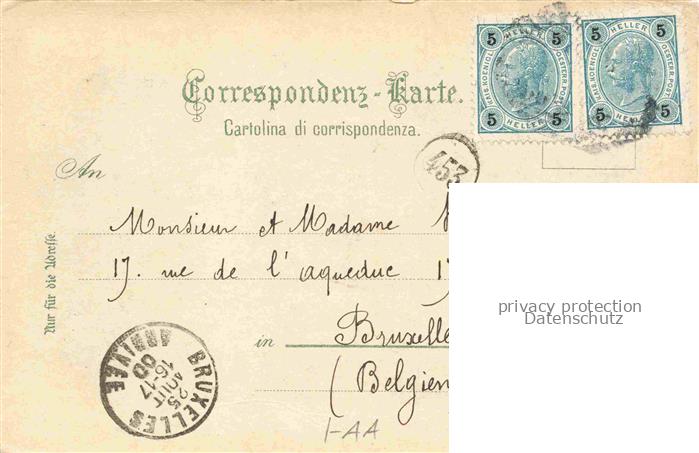 5 HELLER 5
KAIS. KOENIGL. OESTERR. POST
5 HELLER 5
5 HELLER 5
KAIS. KOENIGL. OESTERR. POST
5 HELLER 5
Correspondenz-Karte.
Cartolina di corrispondenza.
453
An
Nur für die Adresse.
Monsieur et Madame
17. rue de l'aqueduc 17
in Bruxelle
(Belgien
BRUXELLES
ARRIVÉE
25
AOUT
16-17
00
1-AA
privacy protection
Datenschutz